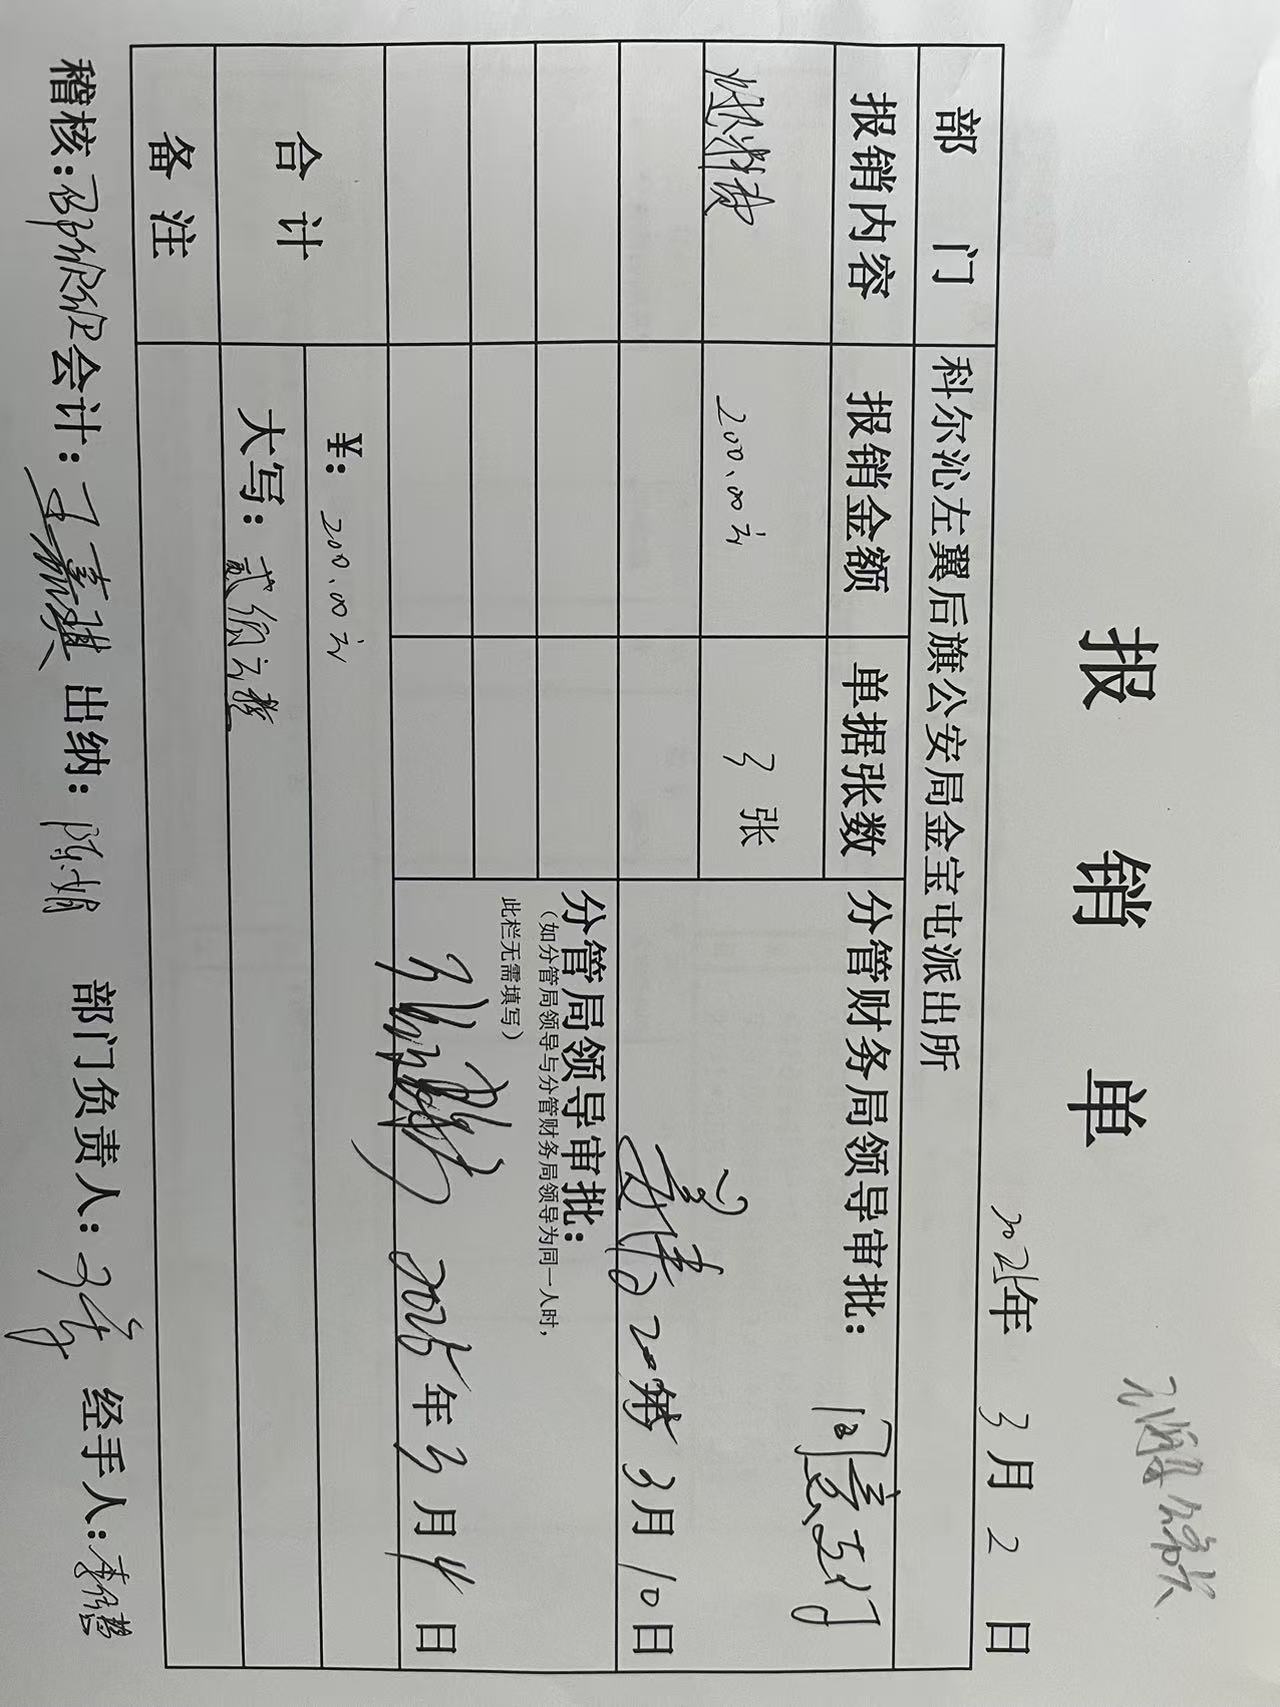 报 销 单
2025年 3月 2 日
部 门 科尔沁左翼后旗公安局金宝屯派出所
报销内容 报销金额 单据张数 分管财务局领导审批：
同意支付
燃料费 200.00元 3 张
年 3月10日
分管局领导审批：
（如分管局领导与分管财务局领导为同一人时，
此栏无需填写）
2025年3月4日
合 计 ¥：200.00元
大写：贰佰元整
备 注
稽核： 会计：王嘉琪 出纳：陈娟 部门负责人： 经手人：